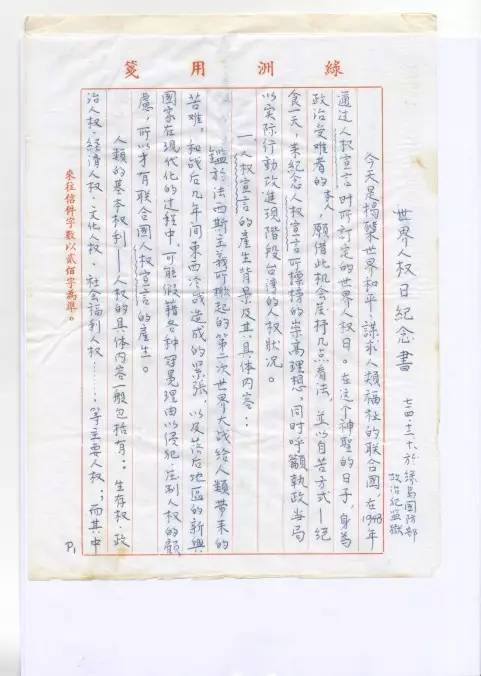 綠洲用箋
世界人权日紀念書
七四·十二·十於綠島國防部
政治犯監獄
今天是揭櫫世界和平、謀求人類福祉的联合國,在1948年
通过人权宣言时所訂定的世界人权日。在这个神聖的日子,身為
政治受难者的本人,願借此机会抒几点看法,並以自苦方式—絕
食一天,来紀念人权宣言所標榜的崇高理想,同时呼籲執政当局
以实际行動改進現階段台灣的人权狀况。
一人权宣言的產生背景及其具体内容:
鑑於法西斯主義所掀起的第二次世界大战給人類帶来的
苦难,和战后几年间東西冷战造成的緊張,以及落后地區的新興
國家在現代化的过程中,可能假藉各种冠冕理由以侵犯、压制人权的顧
慮,所以才有联合國人权宣言的產生。
人類的基本权利——人权的具体内容一般包括有:生存权、政
治人权、經濟人权、文化人权、社会福利人权……等主要人权;而其中
來往信件字數以貳佰字為準。
P.1